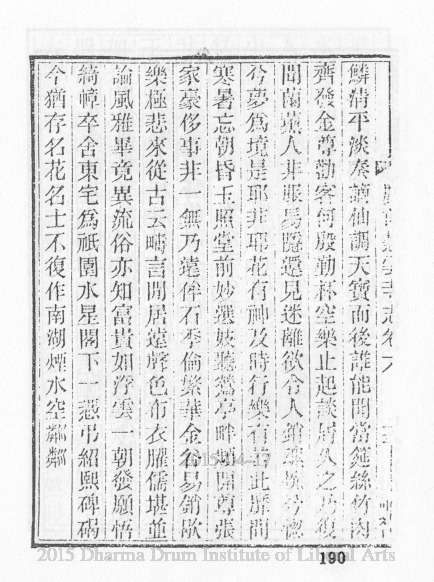 鱗清平淡奏謫仙調天寶而後誰能聞當筵絲竹肉
齊發金尊勸客何殷勤杯空樂止起談屑久之乃復
聞蘭薰人非賬易隱還見迷離欲令人銷魂兮惚
兮夢為境是耶非耶花有神及時行樂有此屏間
寒暑忘朝昏玉照堂前妙選妓聽鶯亭畔頻開尊張
家豪侈事非一無乃遠侔石季倫繁華金谷易銷歇
樂極悲來從古云疇言閒居遠聲色布衣臞儒堪並
論風雅畢竟異流俗亦知富貴如浮雲一朝發願悟
綺幛卒舍東宅為祇園水星閣下一憑弔紹熙碑碣
今猶存名花名士不復作南湖煙水空粼粼
190
2015 Dharma Drum Institute of Liberal Arts